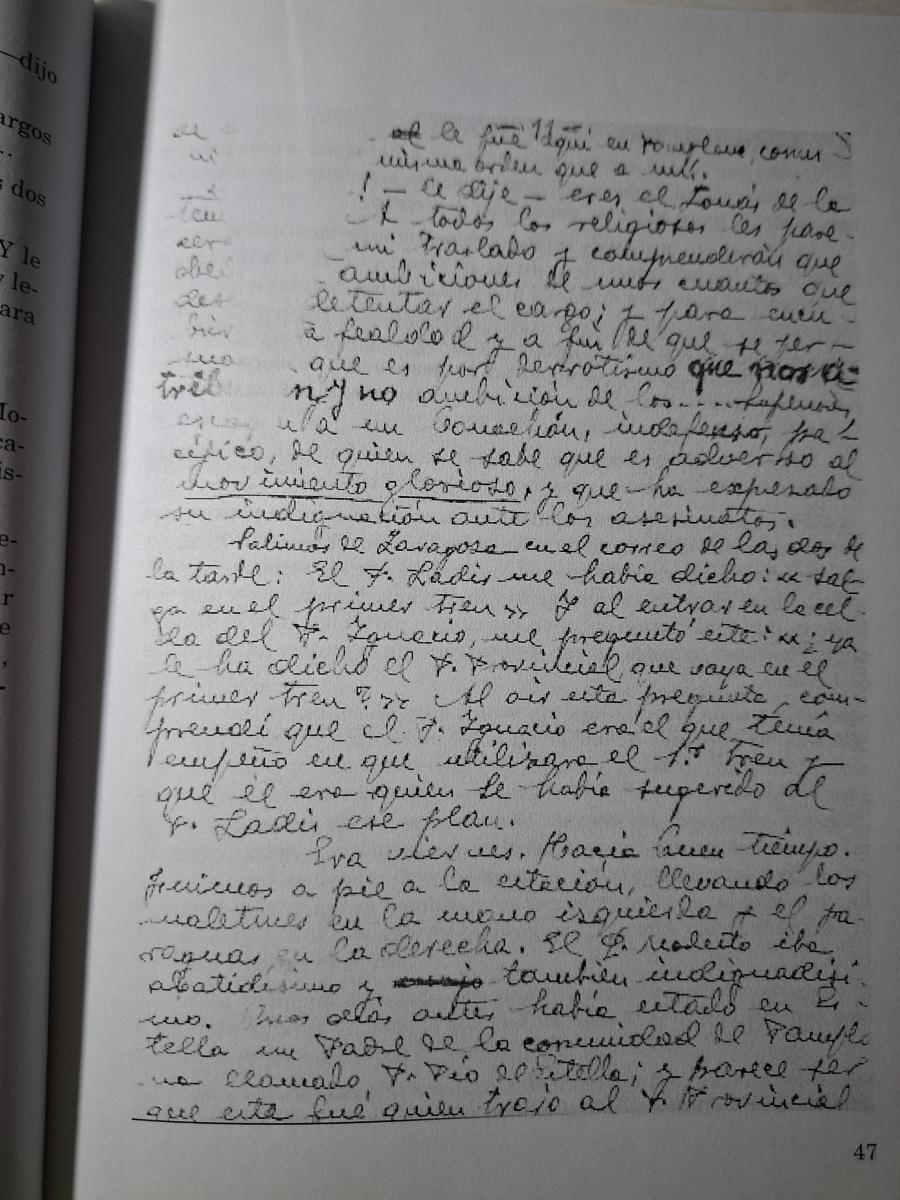 —dijo
argos
..
s dos
Y le
y le-
ara
Mo-
ca-
is-
e-
n-
r
e
,
de le fué aquí en Pamplona, con
ni misma orden que a mí.
! — le dije — eres el Tomás de la
A todos los religiosos les pare-
cer mi traslado y comprenderán que
obe ambiciones de unos cuantos que
des detentar el cargo; y para encu-
brir a fealdad y a fin de que se per-
sua que es por derrotismo que nos a-
trib n y no ambición de los.... Superiores,
a un Capuchón, indefenso, pa-
cífico, de quien se sabe que es adverso al
movimiento glorioso, y que ha expresado
su indignación ante los asesinatos.
Salimos de Zaragoza en el correo de las dos de
la tarde: El P. Ladis me había dicho: «sal-
ga en el primer tren» Y al entrar en la cel-
da del P. Ignacio, me preguntó este: «¿ya
le ha dicho el P. Provincial que vaya en el
primer tren?» Al oir esta pregunta, com-
prendí que el P. Ignacio era el que tenía
empeño en que utilizara el 1.er tren y
que él era quien le había sugerido al
P. Ladis ese plan.
Era viernes. Hacía buen tiempo.
Fuimos a pie a la estación, llevando los
maletines en la mano izquierda y el pa-
raguas en la derecha. El P. Modesto iba
abatidísimo y también indignadísi-
mo. Unos días antes había estado en Es-
tella un Padre de la comunidad de Pamplo
na llamado P. Pío de Estella; y parece ser
que este fué quien trajo al P. Provincial
47